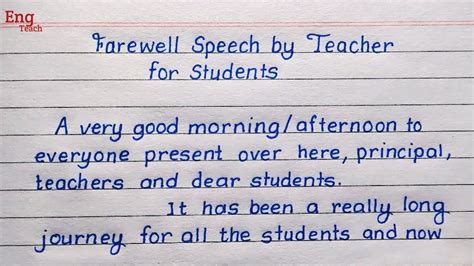 Eng
Teach
Farewell Speech by Teacher
for Students
A very good morning/afternoon to
everyone present over here, principal,
teachers and dear students.
It has been a really long
journey for all the students and now